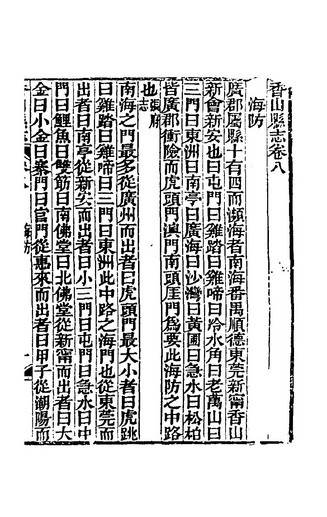 香山縣志卷八
海防
廣郡屬縣十有四而瀕海者南海番禺順德東莞新甯香山
新會新安也曰屯門曰雞踏曰雞啼曰冷水角曰老萬山曰
三門曰東洲曰南亭曰廣海曰沙灣曰黃圃曰急水曰松柏
皆廣郡衝險而虎頭門澳門南頭厓門為要此海防之中路
也
南海之門最多從廣州而出者曰虎頭門最大小者曰虎跳
曰雞踏曰雞啼曰三門曰東洲此中路之海門也從東莞而
出者曰南亭從新安而出者曰小三門曰屯門曰急水曰中
門曰鯉魚曰雙筋曰南佛堂曰北佛堂從新甯而出者曰大
金曰小金曰寨門曰官門從惠來而出者曰甲子從潮陽而